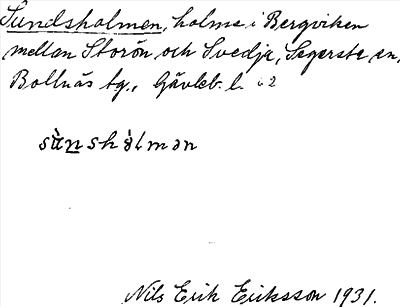 Sundsholmen, holme i Bergviken
mellan Storön och Svedja, Segersta sn,
Bollnäs tg., Gävleb. l.
Nils Erik Eriksson 1931.